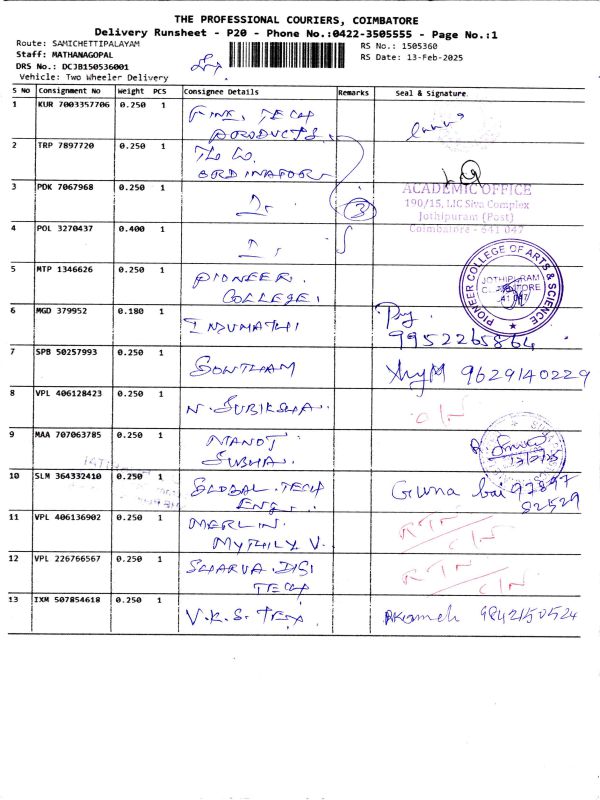 THE PROFESSIONAL COURIERS, COIMBATORE
Delivery Runsheet - P20 - Phone No.:0422-3505555 - Page No.:1
Route: SAMICHETTIPALAYAM
RS No.: 1505360
Staff: MATHANAGOPAL
RS Date: 13-Feb-2025
DRS No.: DCJB150536001
Vehicle: Two Wheeler Delivery
S No Consignment No Weight PCS Consignee Details Remarks Seal & Signature
1 KUR 7003357706 0.250 1 FINE. TECH
PRODUCTS.
2 TRP 7897720 0.250 1 The CO.
ORDINATOR
3 PDK 7067968 0.250 1 3
ACADEMIC OFFICE
190/15, LIC Siva Complex
Jothipuram (Post)
Coimbatore - 641 047
4 POL 3270437 0.400 1
5 MTP 1346626 0.250 1 PIONEER.
COLLEGE.
PIONEER COLLEGE OF ARTS & SCIENCE
JOTHIPURAM
6 MGD 379952 0.180 1 INDUMATHI
9952265864
7 SPB 50257993 0.250 1 GOWTHAM 9629140229
8 VPL 406128423 0.250 1 N. SUBIKSHA.
9 MAA 707063785 0.250 1 MANOJ
SUBHA.
10 SLM 364332410 0.250 1 GLOBAL. TECH
ENG. Guna bai 97897
82529
11 VPL 406136902 0.250 1 MERLIN.
MYTHILY. V.
RTN
12 VPL 226766567 0.250 1 SHARVA. DIGI
TECH
RTN
13 IXM 507854618 0.250 1 V.K.S. Tex 9842150524